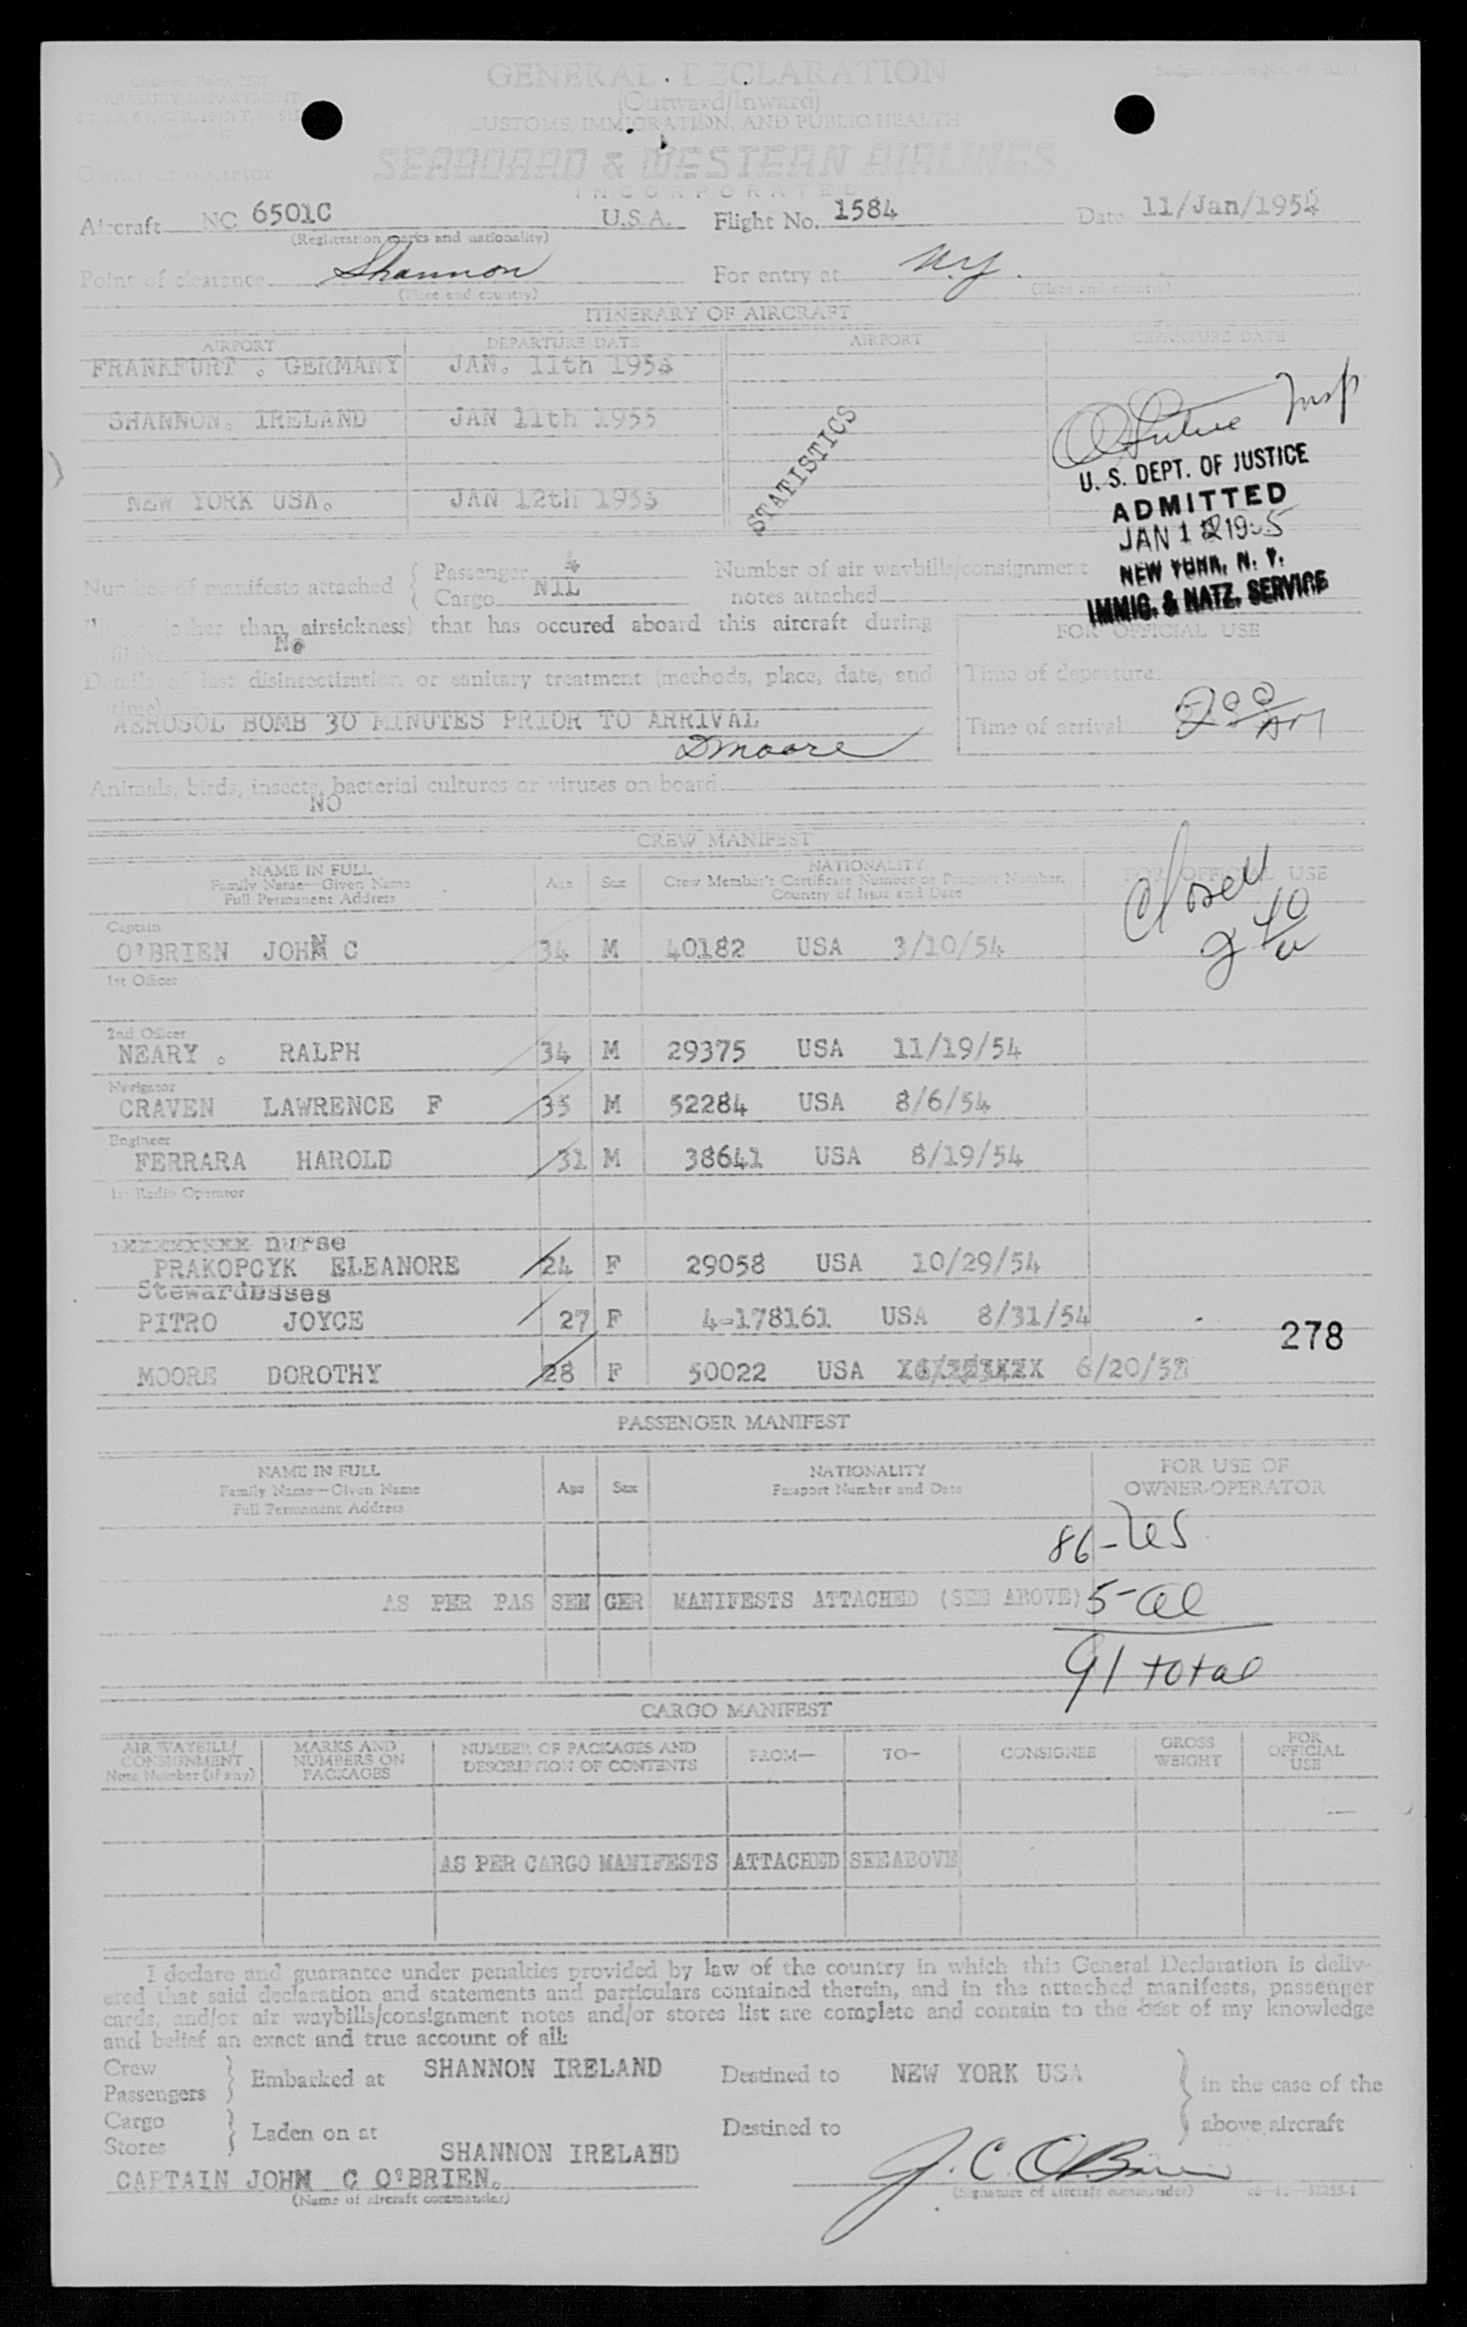 GENERAL DECLARATION
(Outward/Inward)
CUSTOMS, IMMIGRATION, AND PUBLIC HEALTH
SEABOARD & WESTERN AIRLINES
INCORPORATED
Aircraft NC 6501C U.S.A. Flight No. 1584 Date 11/Jan/195
(Registration marks and nationality)
Point of clearance Shannon For entry at N.Y.
(Place and country) (Place and country)
ITINERARY OF AIRCRAFT
AIRPORT DEPARTURE DATE AIRPORT DEPARTURE DATE
FRANKFURT . GERMANY JAN. 11th 195
SHANNON. IRELAND JAN 11th 1955
NEW YORK USA. JAN 12th 195
STATISTICS
Insp
U. S. DEPT. OF JUSTICE
ADMITTED
JAN 12 1955
NEW YORK, N. Y.
IMMIG. & NATZ. SERVICE
Number of manifests attached { Passenger 4 Number of air waybills/consignment
Cargo NIL notes attached
(other than airsickness) that has occured aboard this aircraft during
No
FOR OFFICIAL USE
Details of last disinsectization or sanitary treatment (methods, place, date, and
time)
Time of departure
AEROSOL BOMB 30 MINUTES PRIOR TO ARRIVAL
Time of arrival
DMoore
Animals, birds, insects, bacterial cultures or viruses on board
NO
CREW MANIFEST
NAME IN FULL
Family Name—Given Name
Full Permanent Address
Age Sex
NATIONALITY
Crew Member's Certificate Number or Passport Number,
Country of Issue and Date
FOR OFFICIAL USE
Closed
Captain
O'BRIEN JOHN C 34 M 40182 USA 3/10/54
1st Officer
2nd Officer
NEARY . RALPH 34 M 29375 USA 11/19/54
Navigator
CRAVEN LAWRENCE F 35 M 52284 USA 8/6/54
Engineer
FERRARA HAROLD 31 M 38641 USA 8/19/54
1st Radio Operator
nurse
PRAKOPCYK ELEANORE 24 F 29058 USA 10/29/54
Stewardesses
PITRO JOYCE 27 F 4-178161 USA 8/31/54
278
MOORE DOROTHY 28 F 50022 USA 6/20/5
PASSENGER MANIFEST
NAME IN FULL
Family Name—Given Name
Full Permanent Address
Age Sex
NATIONALITY
Passport Number and Date
FOR USE OF
OWNER-OPERATOR
86-US
AS PER PASSENGER MANIFESTS ATTACHED (SEE ABOVE) 5-al
91 total
CARGO MANIFEST
AIR WAYBILL/
CONSIGNMENT
Note Number (if any)
MARKS AND
NUMBERS ON
PACKAGES
NUMBER OF PACKAGES AND
DESCRIPTION OF CONTENTS
FROM— TO— CONSIGNEE
GROSS
WEIGHT
FOR
OFFICIAL
USE
AS PER CARGO MANIFESTS ATTACHED SEE ABOVE
I declare and guarantee under penalties provided by law of the country in which this General Declaration is deliv-
ered that said declaration and statements and particulars contained therein, and in the attached manifests, passenger
cards, and/or air waybills/consignment notes and/or stores list are complete and contain to the best of my knowledge
and belief an exact and true account of all:
Crew
Passengers } Embarked at SHANNON IRELAND Destined to NEW YORK USA } in the case of the
Cargo
Stores } Laden on at Destined to above aircraft
SHANNON IRELAND
CAPTAIN JOHN C O'BRIEN. J. C. O'Brien
(Name of aircraft commander) (Signature of aircraft commander)